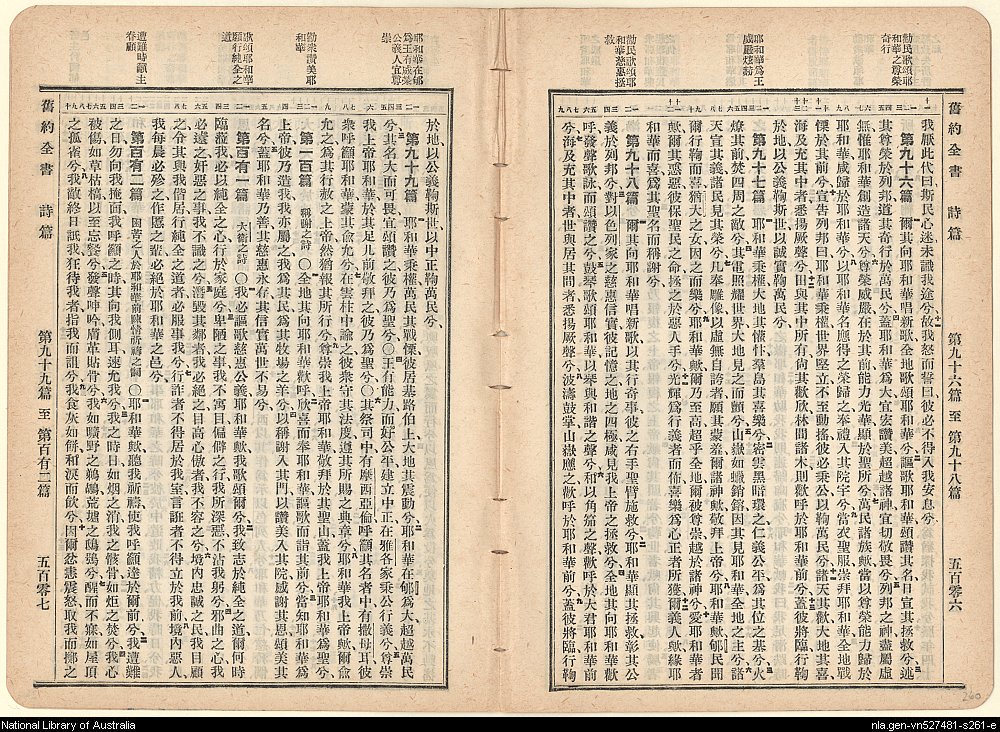 舊約全書 詩篇 第九十六篇 至 第九十八篇 五百零六
勸民歌頌耶
和華之尊榮
奇行
耶和華爲王
勸民歌頌耶
和華慈惠拯
救
我厭此代曰斯民心迷未識我途兮故我怒而誓曰彼必不得入我安息兮
第九十六篇 爾其向耶和華唱新歌全地歌頌耶和華兮謳歌耶和華頌讚其名日宣其拯救兮述
其尊榮於列邦道其奇行於萬民兮蓋耶和華爲大宜宏讚美超越諸神宜切敬畏兮列邦之神盡屬虛
無惟耶和華創造諸天兮尊榮威嚴在於其前能力光華顯於聖所兮萬民諸族歟當以尊榮能力歸於
耶和華咸歸於耶和華兮以耶和華名應得之榮歸之奉禮入其院宇兮當衣聖服崇拜耶和華全地戰
慄於其前兮宣告列邦曰耶和華秉權世界堅立不至動搖彼必秉公以鞫萬民兮諸天其歡大地其喜
海及充其中者悉揚厥聲兮田與其中所有尚其歡欣林間諸木則歡呼於耶和華前兮蓋彼將臨行鞫
於地以公義鞫斯世以誠實鞫萬民兮
第九十七篇 耶和華秉權大地其懽忭羣島其喜樂兮密雲黑暗環之仁義公平爲其位之基兮火
燎其前焚四周之敵兮其電照耀世界大地見之而顫兮山嶽如蠟銷鎔因其見耶和華全地之主兮諸
天宣其義諸民見其榮兮凡奉雕像以虛無自誇者願其蒙羞爾諸神歟敬拜上帝兮耶和華歟郇民聞
爾行鞫而喜猶大之女因之而樂兮耶和華歟爾乃至高超乎全地爾彼尊崇越於諸神兮愛耶和華者
歟爾其惡惡彼保厥聖民之命拯之於惡人手兮光輝爲行義者而佈喜樂爲心正者所獲爾義人歟緣耶
和華而喜爲其聖名而稱謝兮
第九十八篇 爾其向耶和華唱新歌以其行奇事彼之右手聖臂施救兮耶和華顯其拯救彰其公
義於列邦兮對以色列家之慈惠信實彼記憶之地之四極咸見我上帝之拯救兮全地其向耶和華歡
呼發聲歌詠而頌讚之兮鼓琴歌頌耶和華以琴與和諧之聲兮和以角笳之聲歡呼於大君耶和華前
兮海及充其中者世與居其間者悉揚厥聲兮波濤鼓掌山嶽應之歡呼於耶和華前兮蓋彼將臨行鞫
耶和華在郇
公義人宜尊
崇
勸衆讚美耶
和華
歌頌耶和華
願行純全之
道
遭難時籲主
眷顧
於地以公義鞫斯世以中正鞫萬民兮
第九十九篇 耶和華秉權萬民其戰慄彼居基路伯上大地其震動兮耶和華在郇爲大超越萬民
兮其名大而可畏宜頌讚之彼乃爲聖兮〇王有能力而好公平建立中正在雅各家秉公行義兮尊崇
我上帝耶和華於其足几前敬拜之彼乃爲聖兮〇其祭司中有摩西亞倫呼籲其名者中有撒母耳彼
衆呼籲耶和華蒙其俞允兮在雲柱中諭之彼衆守其法度遵其所賜之典章兮耶和華我上帝歟爾俞
允之爲其行赦之上帝然猶報其所行兮尊崇我上帝耶和華敬拜於其聖山蓋我上帝耶和華爲聖兮
第一百篇 稱謝之詩 〇全地其向耶和華歡呼欣喜而奉耶和華謳歌而詣其前兮當知耶和華爲
上帝彼乃造我我亦屬之我爲其民爲其牧場之羊兮以稱謝入其門以讚美入其院感謝其恩頌美其
名兮蓋耶和華乃善其慈惠永存其信實萬世不易兮
第百有一篇 大衛之詩 〇我必謳歌慈惠公義耶和華歟我歌頌爾兮我致志於純全之道爾何時
臨蒞我我必以純全之心行於家庭兮卑陋之事我不寓目偏僻之行我所深惡不沾我躬兮邪曲之心我
必遠之奸惡之事我不識之兮潛毀其鄰者我必絕之目高心傲者我不容之兮境內忠誠之民我目顧
之令其與我偕居行純全之道者必服事我兮行詐者不得居於我室言誑者不得立於我前境內惡人
我每晨必殄之作慝之輩必絕於耶和華之邑兮
第百有二篇 困苦之人於耶和華前陳情所禱爾 〇耶和華歟聽我祈禱使我呼籲達於爾前兮我遭難
之日勿向我掩面我呼籲之時其向我側耳速允我兮我之時日如烟之消我之骸骨如炬之焚兮我心
被傷如草枯槁以至忘餐兮發聲呻吟膚革貼骨兮我如曠野之鵜鶘荒墟之鴟鴞兮醒而不寐如屋頂
之孤雀兮我敵終日詆我狂待我者指我而詛兮我食灰如餅和淚而飲兮因爾忿恚震怒取我而擲之
舊約全書 詩篇 第九十九篇 至 第百有二篇 五百零七
260
National Library of Australia
nla.gen-vn527481-s261-e